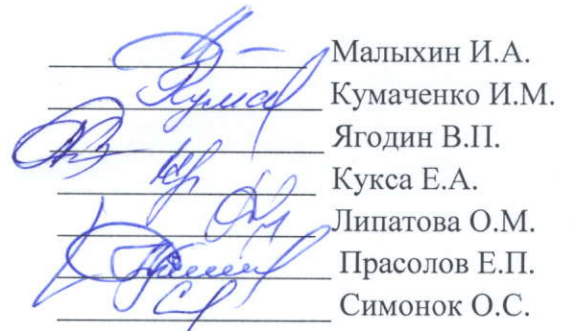 Малыхин И.А.
Кумаченко И.М.
Ягодин В.П.
Кукса Е.А.
Липатова О.М.
Прасолов Е.П.
Симонок О.С.